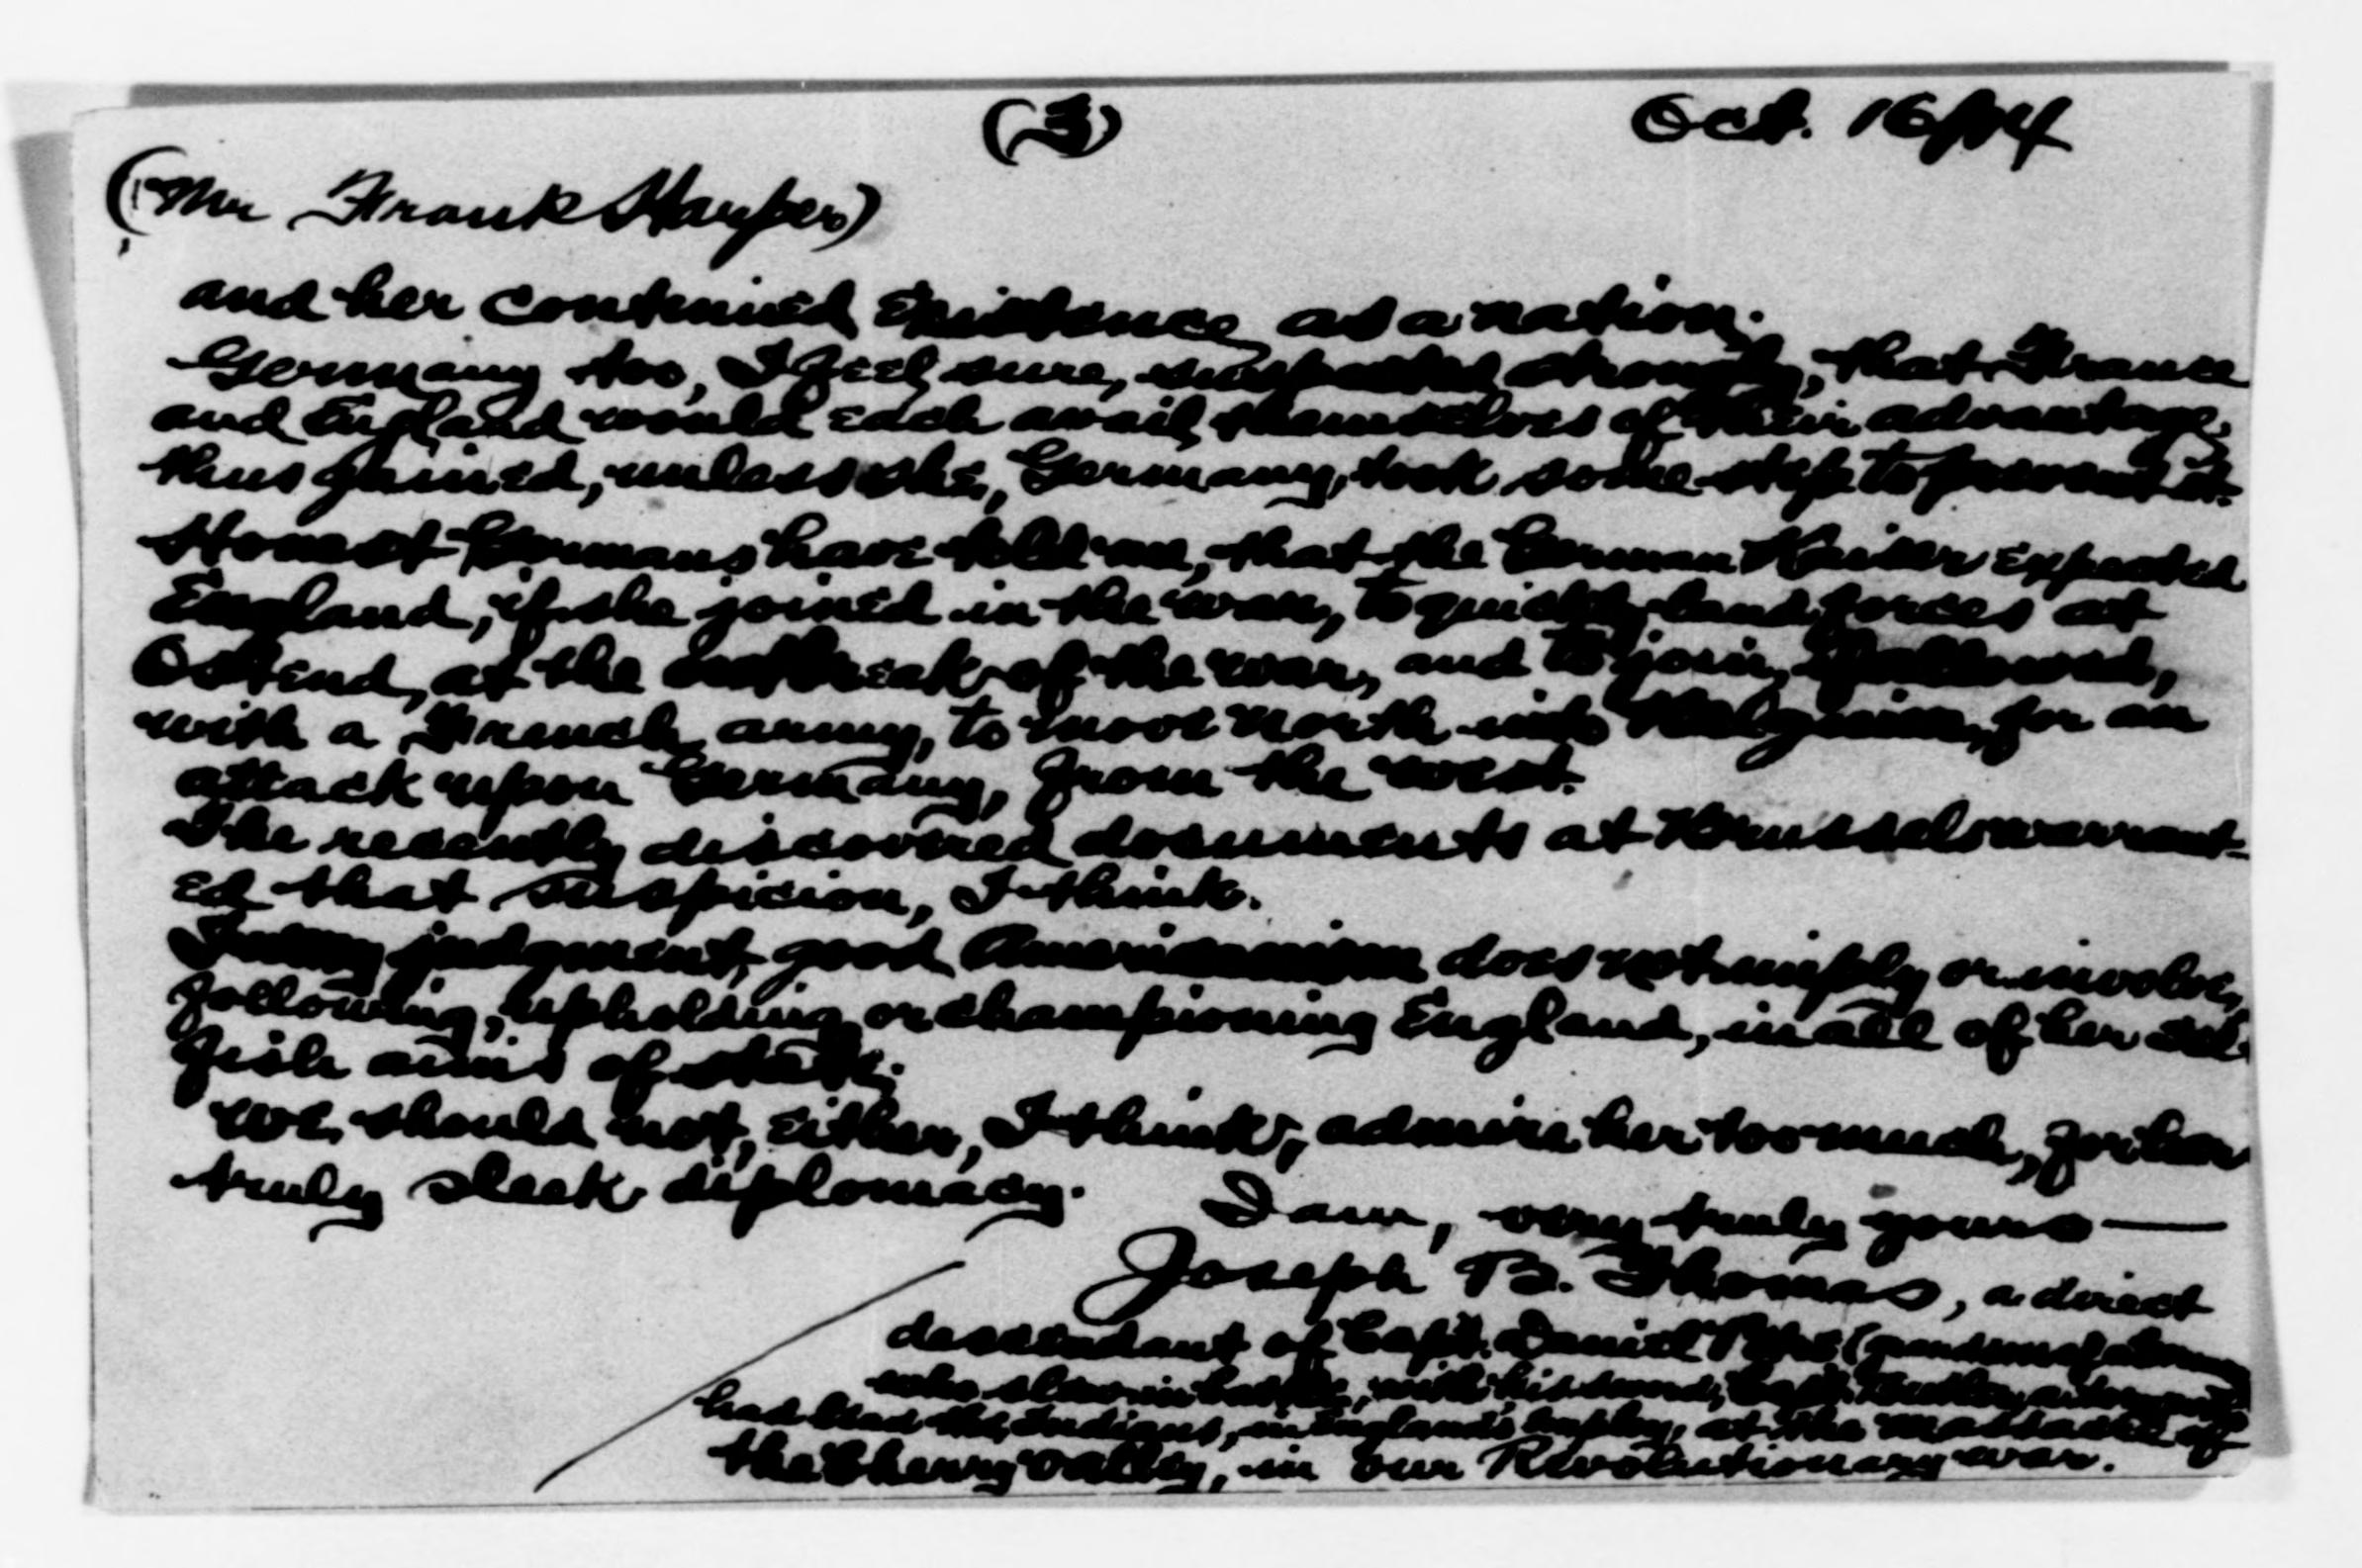 (3) Oct. 16/14
(Mr Frank Harper)
and her continued Existence, as a nation.
Germany too, I feel sure, suspected strongly, that France
and England would each avail themselves of their advantage,
thus gained, unless she, Germany, took some step to prevent it.
Honest Germans have told me, that the German Kaiser expected
England, if she joined in the war, to quickly land forces at
Ostend, at the outbreak of the war, and to join, if allowed,
with a French army, to move north into Belgium, for an
attack upon Germany, from the west.
The recently discovered documents at Brussels warrant-
ed that suspicion, I think.
In my judgment, good Americanism does not imply or involve,
following, upholding or championing England, in all of her sel-
fish aims of state.
We, should not, either, I think, admire her too much, for her
truly sleek diplomacy.
I am, very truly yours —
Joseph B. Thomas, a direct
descendant of Capt. Daniel
who slew in battle, with his sword, Capt. Butler,
had lead the Indians, in England's employ, at the massacre of
the Cherry Valley, in our Revolutionary war.